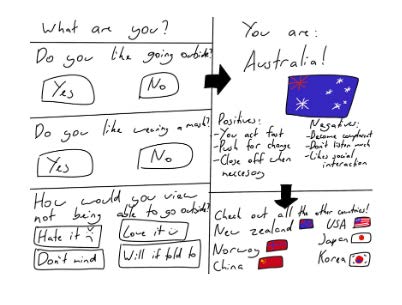 What are you?
Do you like going outside?
Yes
No
Do you like wearing a mask?
Yes
No
How would you view
not being able to go outside?
Hate it
Love it
Don't mind
Will if told to
You are:
Australia!
Positives:
-You act fast
-Push for change
-Close off when
necessary
Negatives:
-Become complacent
-Don't listen much
-Likes social
interaction
Check out all the other countries!
New zealand
USA
Norway
Japan
China
Korea